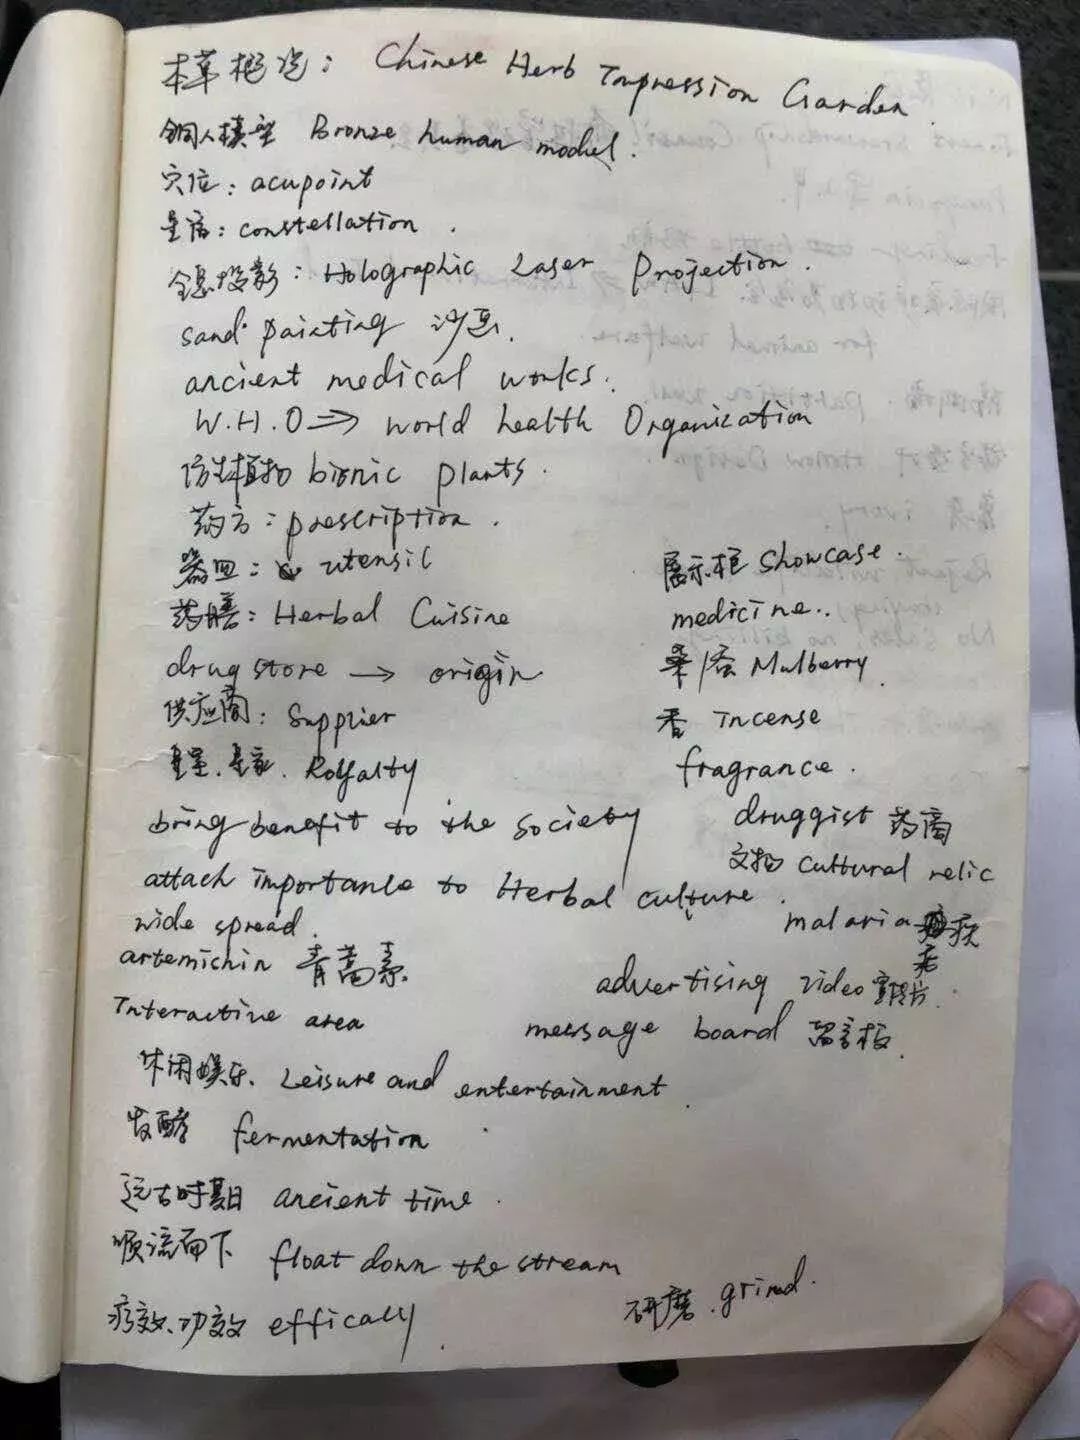 本草概览: Chinese Herb Impression Garden
铜人模型 Bronze human model.
穴位: acupoint
星宿: constellation.
全息投影: Holographic Laser Projection.
sand painting 沙画.
ancient medical works.
W.H.O => world health Organization
仿生植物 bionic plants.
药方: prescription.
器皿: utensil
展示柜 showcase.
药膳: Herbal Cuisine
medicine..
drug store → origin
桑/蚕 Mulberry
供应商: supplier
香 incense
皇室. 皇家. Royalty
fragrance.
bring benefit to the society
druggist 药商
文物 cultural relic
attach importance to Herbal culture.
wide spread.
malaria 疟疾
artemisinin 青蒿素
advertising video 宣传片.
Interactive area
message board 留言板.
休闲娱乐. Leisure and entertainment.
发酵 fermentation
远古时期 ancient time.
顺流而下 float down the stream
疗效、功效 efficacy
研磨. grind.